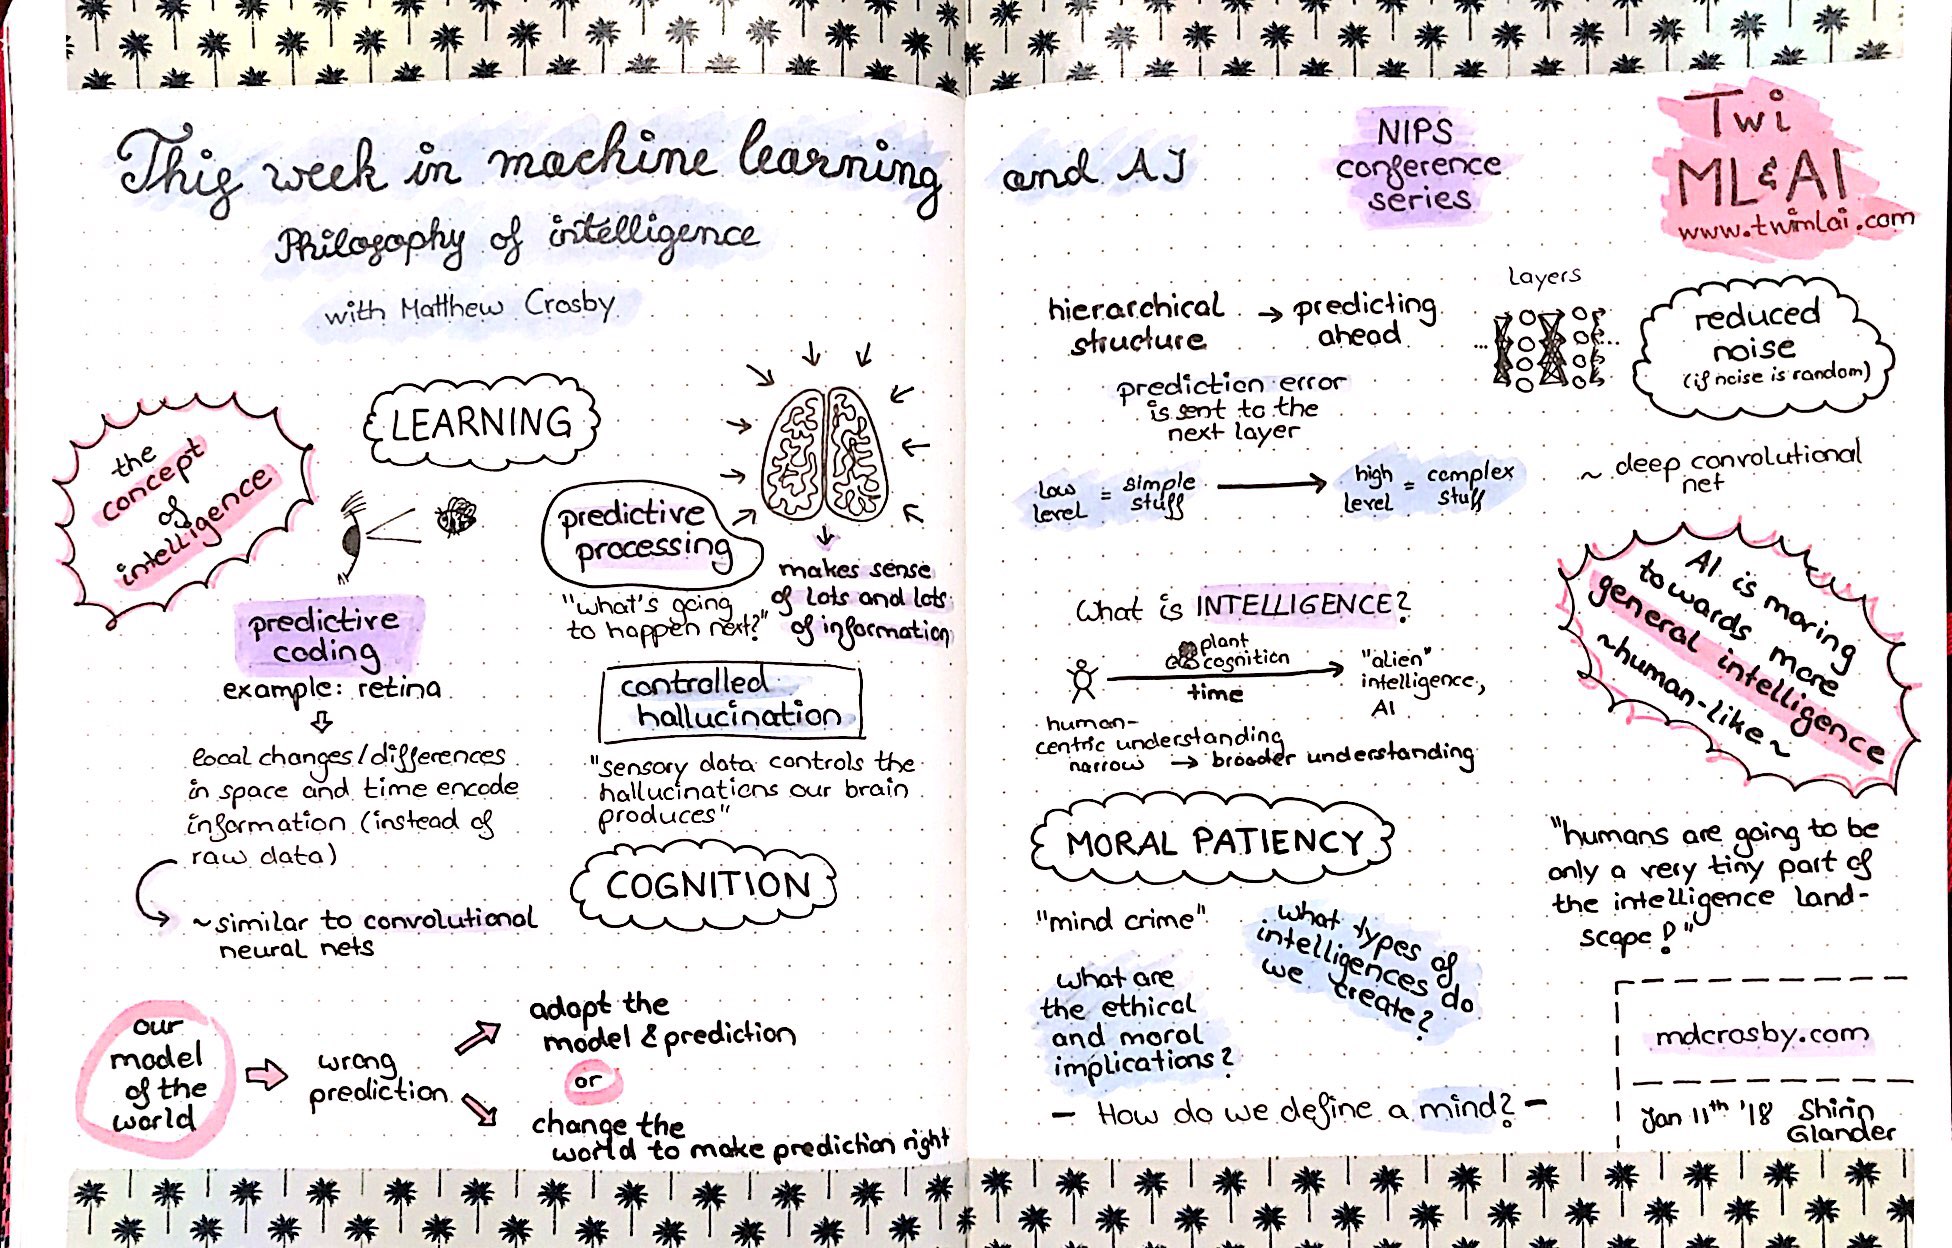 This week in machine learning and AI
Philosophy of intelligence
with Matthew Crosby
the
concept
of
intelligence
LEARNING
predictive
processing
"what's going
to happen next?"
makes sense
of lots and lots
of information
predictive
coding
example: retina
local changes/differences
in space and time encode
information (instead of
raw data)
~similar to convolutional
neural nets
controlled
hallucination
"sensory data controls the
hallucinations our brain
produces"
COGNITION
our
model
of the
world
wrong
prediction
adapt the
model & prediction
or
change the
world to make prediction right
NIPS
conference
series
Twi
ML&AI
www.twimlai.com
hierarchical
structure
→ predicting
ahead
Layers
reduced
noise
(if noise is random)
prediction error
is sent to the
next layer
low
level
= simple
stuff
high
level
= complex
stuff
~ deep convolutional
net
What is INTELLIGENCE?
plant
cognition
time
"alien"
intelligence,
AI
human-
centric understanding
narrow → broader understanding
AI is moving
towards more
general intelligence
~human-like~
MORAL PATIENCY
"mind crime"
what types of
intelligences do
we create?
what are
the ethical
and moral
implications?
"humans are going to be
only a very tiny part of
the intelligence land-
scape!"
- How do we define a mind? -
mdcrosby.com
Jan 11th '18
Shirin
Glander